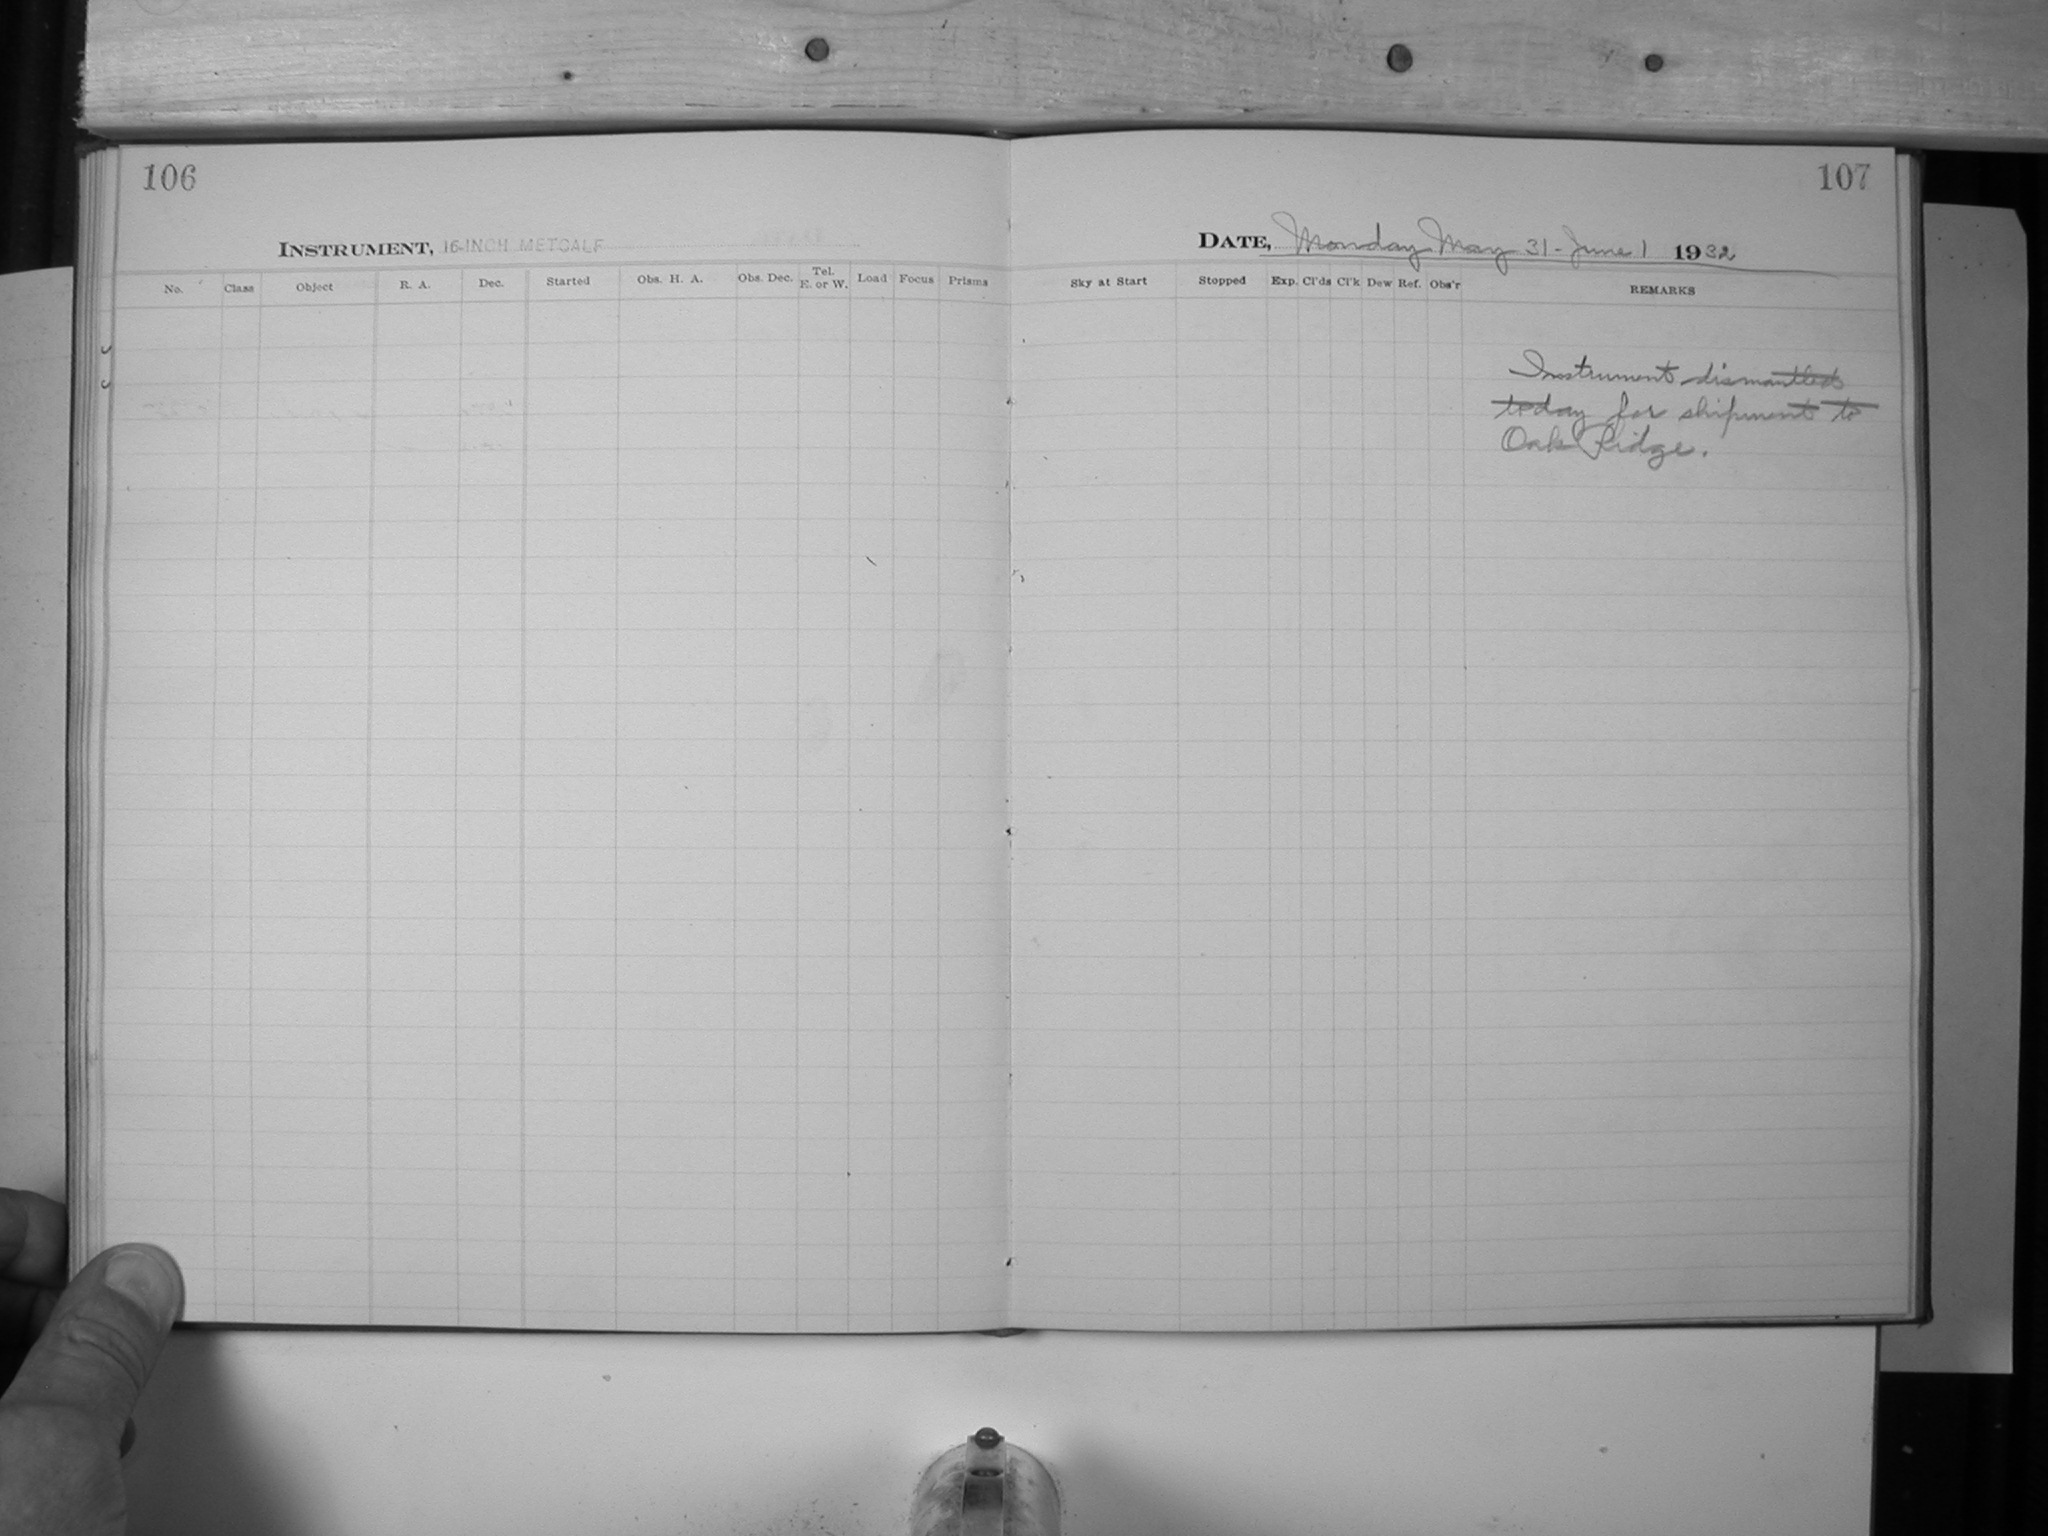 106
INSTRUMENT, 16-INCH METCALF
No. Class Object R. A. Dec. Started Obs. H. A. Obs. Dec. Tel. E. or W. Load Focus Prisms
107
DATE, Monday May 31 - June 1 1932
Sky at Start Stopped Exp. Cl'ds Cl'k Dew Ref. Obs'r REMARKS
Instrument dismantled
today for shipment to
Oak Ridge.